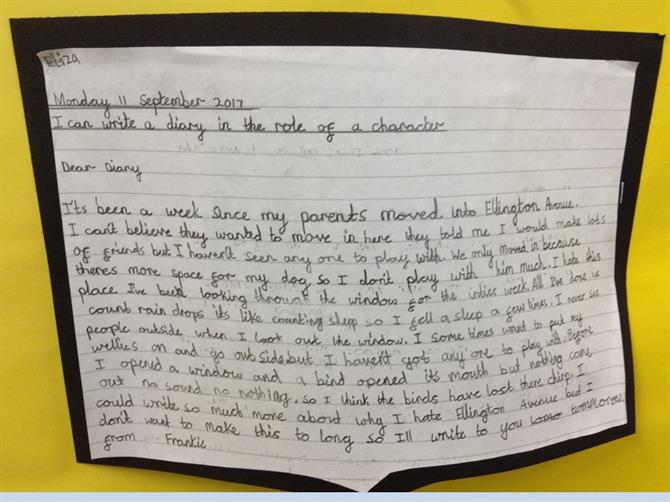 Eliza
Monday 11 September 2017
I can write a diary in the role of a character
Dear Diary
I'ts been a week since my parents moved into Ellington Avenue.
I can't believe they wanted to move in here they told me I would make lots
of friends but I haven't seen any one to play with. We only moved in because
theres more space for my dog so I don't play with him much. I hate this
place I've been looking through the window for the intier week. All I've done is
count rain drops its like counting sleep so I fell a sleep a few times. I never see
people outside when I look out the window. I some times want to put my
wellies on and go out side but I haven't got any one to play with. Before
I opened a window and a bird opened it's mouth but nothing came
out no sound no nothing, so I think the birds have lost there chirp. I
could write so much more about why I hate Ellington Avenue but I
don't want to make this to long so I'll write to you tommorow.
from Frankie